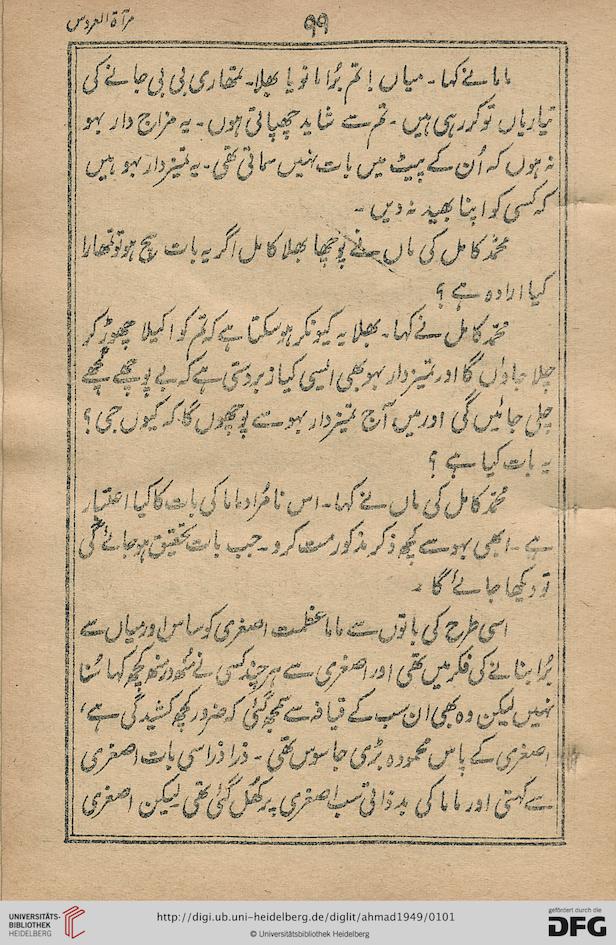 مرآة العروس
۹۹
ماما نے کہا۔ میاں! تم بُرا مانو یا بھلا۔ تمھاری بی بی جانے کی
تیاریاں تو کر رہی ہیں۔ تم سے شاید چھپاتی ہوں۔ یہ مزاج دار بہو
نہ ہوں کہ اُن کے پیٹ میں بات نہیں سماتی تھی۔ یہ تمیز دار بہو ہیں
کہ کسی کو اپنا بھید نہ دیں۔
محمّد کامل کی ماں نے پوچھا بھلا کامل اگر یہ بات سچ ہو تو تمھارا
کیا ارادہ ہے؟
محمّد کامل نے کہا۔ بھلا یہ کیونکر ہو سکتا ہے کہ تم کو اکیلا چھوڑ کر
چلا جاؤں گا اور تمیز دار بہو بھی ایسی کیا زبردستی ہے کہ بے پوچھے گچھے
چلی جائیں گی اور میں آج تمیز دار بہو سے پوچھوں گا کہ کیوں جی؟
یہ بات کیا ہے؟
محمّد کامل کی ماں نے کہا۔ اس نامُراد ماما کی بات کا کیا اعتبار
ہے۔ ابھی بہو سے کچھ ذکر مذکور مت کرو۔ جب بات تحقیق ہو جائے گی
تو دیکھا جائے گا۔
اسی طرح کی باتوں سے ماما عظمت اصغری کو ساس اور میاں سے
بُرا بنانے کی فکر میں تھی اور اصغری سے ہر چند کسی نے منھ در منھ کچھ کہا سُنا
نہیں لیکن وہ بھی ان سب کے قیافہ سے سمجھ گئی کہ ضرور کچھ کشیدگی ہے،
اصغری کے پاس محمودہ بڑی جاسوس تھی۔ ذرا ذرا سی بات اصغری
سے کہتی اور ماما کی بدذاتی سب اصغری پر کھُل گئی تھی لیکن اصغری
UNIVERSITÄTS-
BIBLIOTHEK
HEIDELBERG
http://digi.ub.uni-heidelberg.de/diglit/ahmad1949/0101
© Universitätsbibliothek Heidelberg
gefördert durch die
DFG